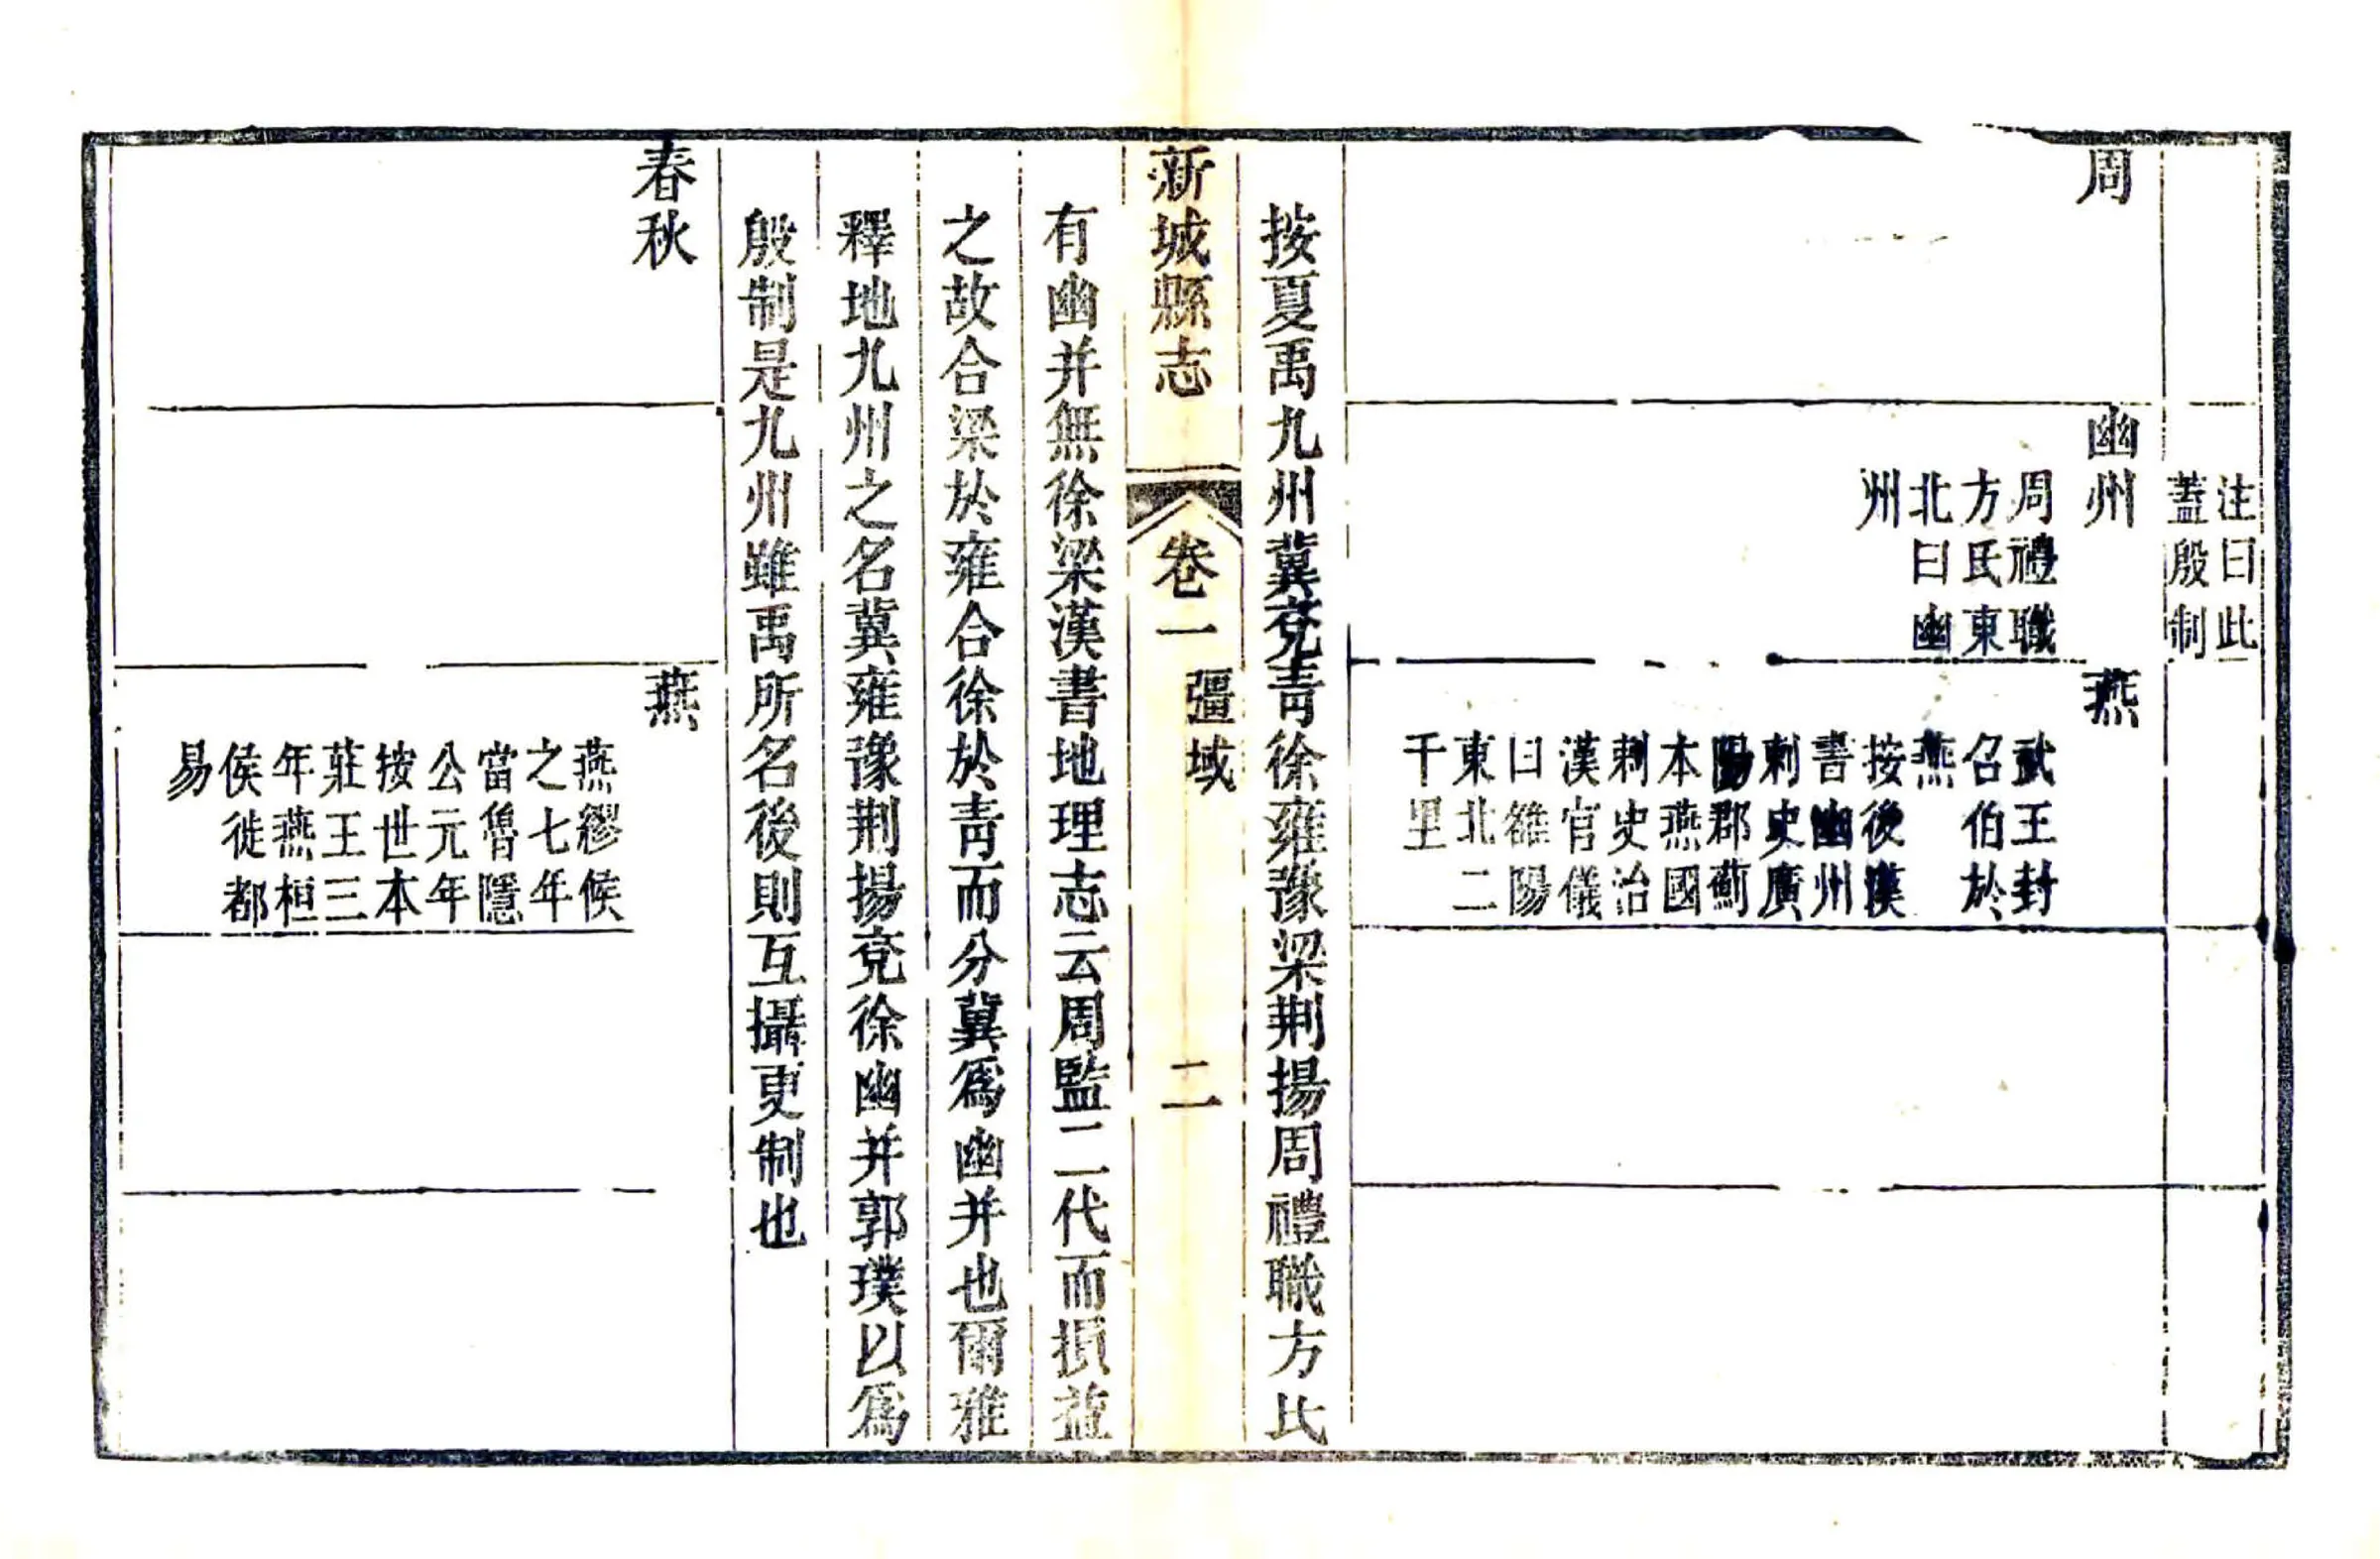 注曰此
蓋殷制
周
幽州
周禮職
方氏東
北曰幽
州
燕
武王封
召伯於
燕
按後漢
書幽州
刺史廣
陽郡薊
本燕國
刺史治
漢官儀
曰雒陽
東北二
千里
按夏禹九州冀兗青徐雍豫梁荆揚周禮職方氏
新城縣志
卷一
疆域
二
有幽并無徐梁漢書地理志云周監二代而損益
之故合梁於雍合徐於青而分冀爲幽并也爾雅
釋地九州之名冀雍豫荆揚兗徐幽并郭璞以爲
殷制是九州雖禹所名後則互攝更制也
春秋
燕
燕繆侯
之七年
當魯隱
公元年
按世本
莊王三
年燕桓
侯徙都
易